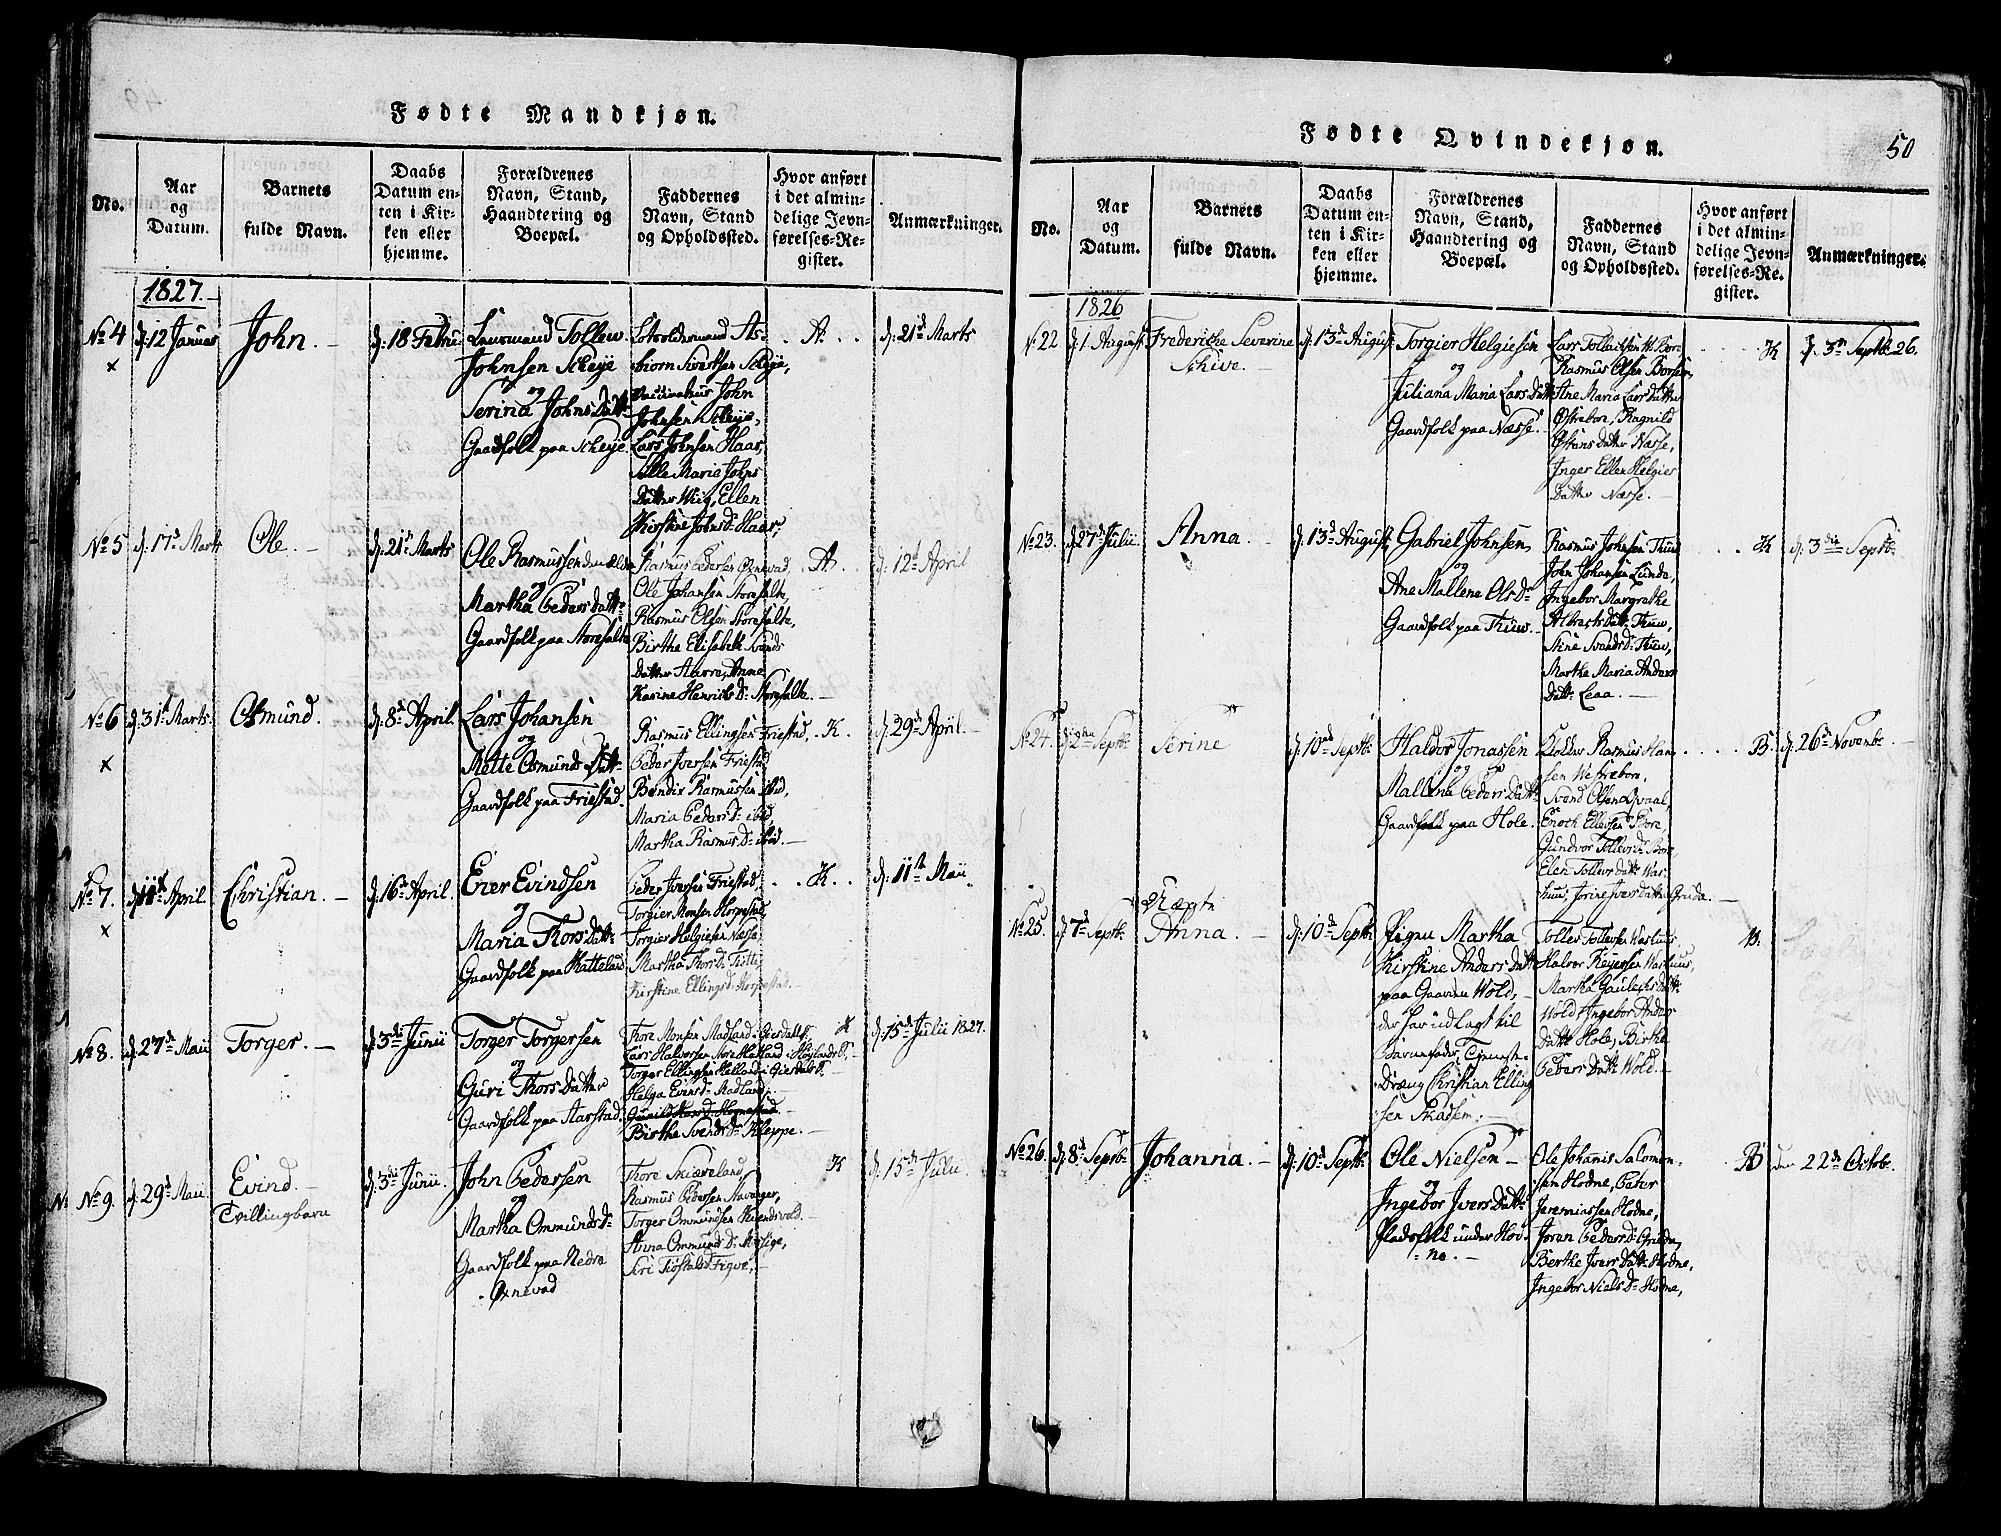 Fødte Mandkjøn.
No.
Aar og Datum.
Barnets fulde Navn.
Daabs Datum enten i Kirken eller hjemme.
Forældrenes Navn, Stand, Haandtering og Boepæl.
Faddernes Navn, Stand og Opholdssted.
Hvor anført i det almindelige Jevnførelses-Register.
Anmærkninger.
1827.
No 4 d. 12 Januar John. d. 18 Febru
Lensmand Tollew
Johnsen Scheje
og
Serina Johns Datt.
Gaardfolk paa Scheje.
Johnsen Scheje,
Lars Johnsen Haar,
Sille Marie Johns
Datter Wiig, Ellen
Kirstine Johnsd. Haar,
A. d. 21d Marts
No 5 d. 17d Marts Ole. d. 21d Marts
Ole Rasmussen den Ældre
og
Martha Peders Datt.
Gaardfolk paa Storefalte
Rasmus Pedersen Oxnevad
Ole Johansen Storefalte,
Rasmus Olsen Storefalte,
Birthe Elisabeth Svends
Datter Aerre, Anne
Karine Henrichs D. Storefalte.
A. d. 12d April
No 6 d. 31t Marts. Osmund. d. 8d April.
Lars Johansen
og
Mette Osmunds Datt.
Gaardfolk paa Friestad.
Rasmus Ellingsen Friestad,
Peder Iversen Friestad
Bendix Rasmussen ibid,
Maria Pedersd. ibid,
Martha Rasmusd. ibid.
K. d. 29d April.
No 7. d. 11t April Christian. d. 16d April.
Ever Evindsen
og
Maria Thors Datt.
Gaardfolk paa Katteland
Peder Iversen Friestad,
Torgier Monsen Horpestad,
Torgier Helgiesen Næsse,
Martha Thorsd. Tiøtte,
Kirstine Ellingsd. Horpestad.
K. d. 11t Maii
No 8. d. 27d Maii Torger. d. 3die Junii
Torger Torgersen
og
Guri Thors Datter
Gaardfolk paa Aarstad.
Thore Monsen Madland i Giesdalsk.
Lars Halvorsen Nore Hatland i Høylands P.
Torger Ellingsen Hetland i Giesdals P.
Helga Evinsd. Madland.
Birthe Svendsd. Kleppe.
K d. 15d Julii 1827.
No 9. d. 29d Maii Evind. d. 3di Junii.
Tvillingbarn
John Pedersen
og
Martha Ommundsd.
Gaardfolk paa Nedre
Oxnevad
Thore Skiæveland,
Rasmus Pedersen Stavanger,
Torger Ommundsen Kiendivold.
Anna Ommundd. Mosige,
Siri Tiøstelsd. Figve,
K d. 15d Julii.
Fødte Qvindekjøn.
50
No.
Aar og Datum.
Barnets fulde Navn.
Daabs Datum enten i Kirken eller hjemme.
Forældrenes Navn, Stand, Haandtering og Boepæl.
Faddernes Navn, Stand og Opholdssted.
Hvor anført i det almindelige Jevnførelses-Register.
Anmærkninger.
1826
No 22 d. 1 August Frederiche Severine d. 13d August
Schive.
Torgier Helgiesen
og
Juliana Maria Lars Datt.
Gaardfolk paa Næsse.
Rasmus Olsen Borsen,
Ane Maria Lars Datter
Østrebøe, Ragnild
Østens Datter Næsse,
Inger Ellen Helgies
Datter Næsse.
K d. 3die Septbr 26.
No 23. d. 27d Julii Anna. d. 13d August
Gabriel Johnsen
og
Ane Mallene Olsd.
Gaardfolk paa Thuw.
Rasmus Johnsen Thuw
John Johansen Lunde,
Ingebor Margrethe
Albretsdatt. Thuw,
Stine Svendsd. Thuw,
Marthe Maria Anders
Datt. Leaa.
K d. 3die Septbr.
No 24. d. 2den Septbr. Serine d. 10nd Septbr.
Haldor Jonassen
og
Mallena Peders Datt.
Gaardfolk paa Hole.
Klokker Rasmus Han
sen Westrebøe,
Svend Olsen Qvaal
Enoch Ellevsen Bore,
Gundvor Tollevsd. Bore
Elen Tollevs Datt. War
huus, Jorine Ivers Datter Gruda.
B. d. 26d Novenbr.
No 25. d. 7d Septbr. Uægte
Anna. d. 10d Septbr.
Pigen Martha
Kirstine Anders Datt.
paa Gaarden Wold,
der har udlagt til
Barnefader, Tjeneste
Dreng Christian Elling
sen Skadsem.
Tolles Tollevsen Warhuus
Halvor Reyersen Warhuus,
Martha Gautechs Datt.
Wold, Ingebor Anders
Datt. Hole, Birthe
Peders Datt. Wold.
B.
No 26. d. 8d Septbr. Johanna. d. 10d Septbr.
Ole Nielsen
og
Ingebor Ivers Datt.
Pladsfolk under Hod
ne.
Ole Johanis Salomon
sen Hodne, Peter
Jeremiassen Hodne,
Joren Pedersd. Gruda,
Berthe Ivers Datt. Hodne,
Ingebor Nielsd. Hodne,
B den 22de Octob.